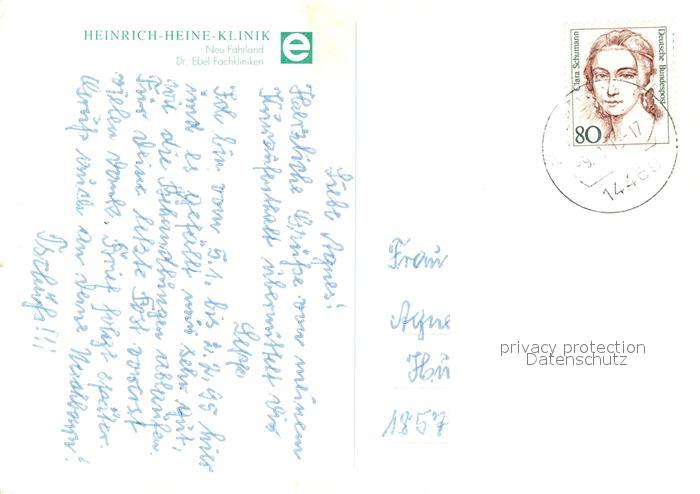 HEINRICH-HEINE-KLINIK
Neu Fahrland
Dr. Ebel Fachkliniken
e
Clara Schumann
Deutsche Bundespost
80
-17
1446
Liebe Agnes!
Herzliche Grüße von meinem
Kuraufenthalt übermittelt Dir
Sepp
Ich bin vom 5.1. bis 2.2.95 hier
und es gefällt mir sehr gut,
wie die Behandlungen ablaufen.
Für Deine letzte Post vorerst
vielen Dank. Brief folgt später.
Gruß auch an Deine Nachbarn!
Tschüß!!!
Frau
Agne
Hu
1857
privacy protection
Datenschutz